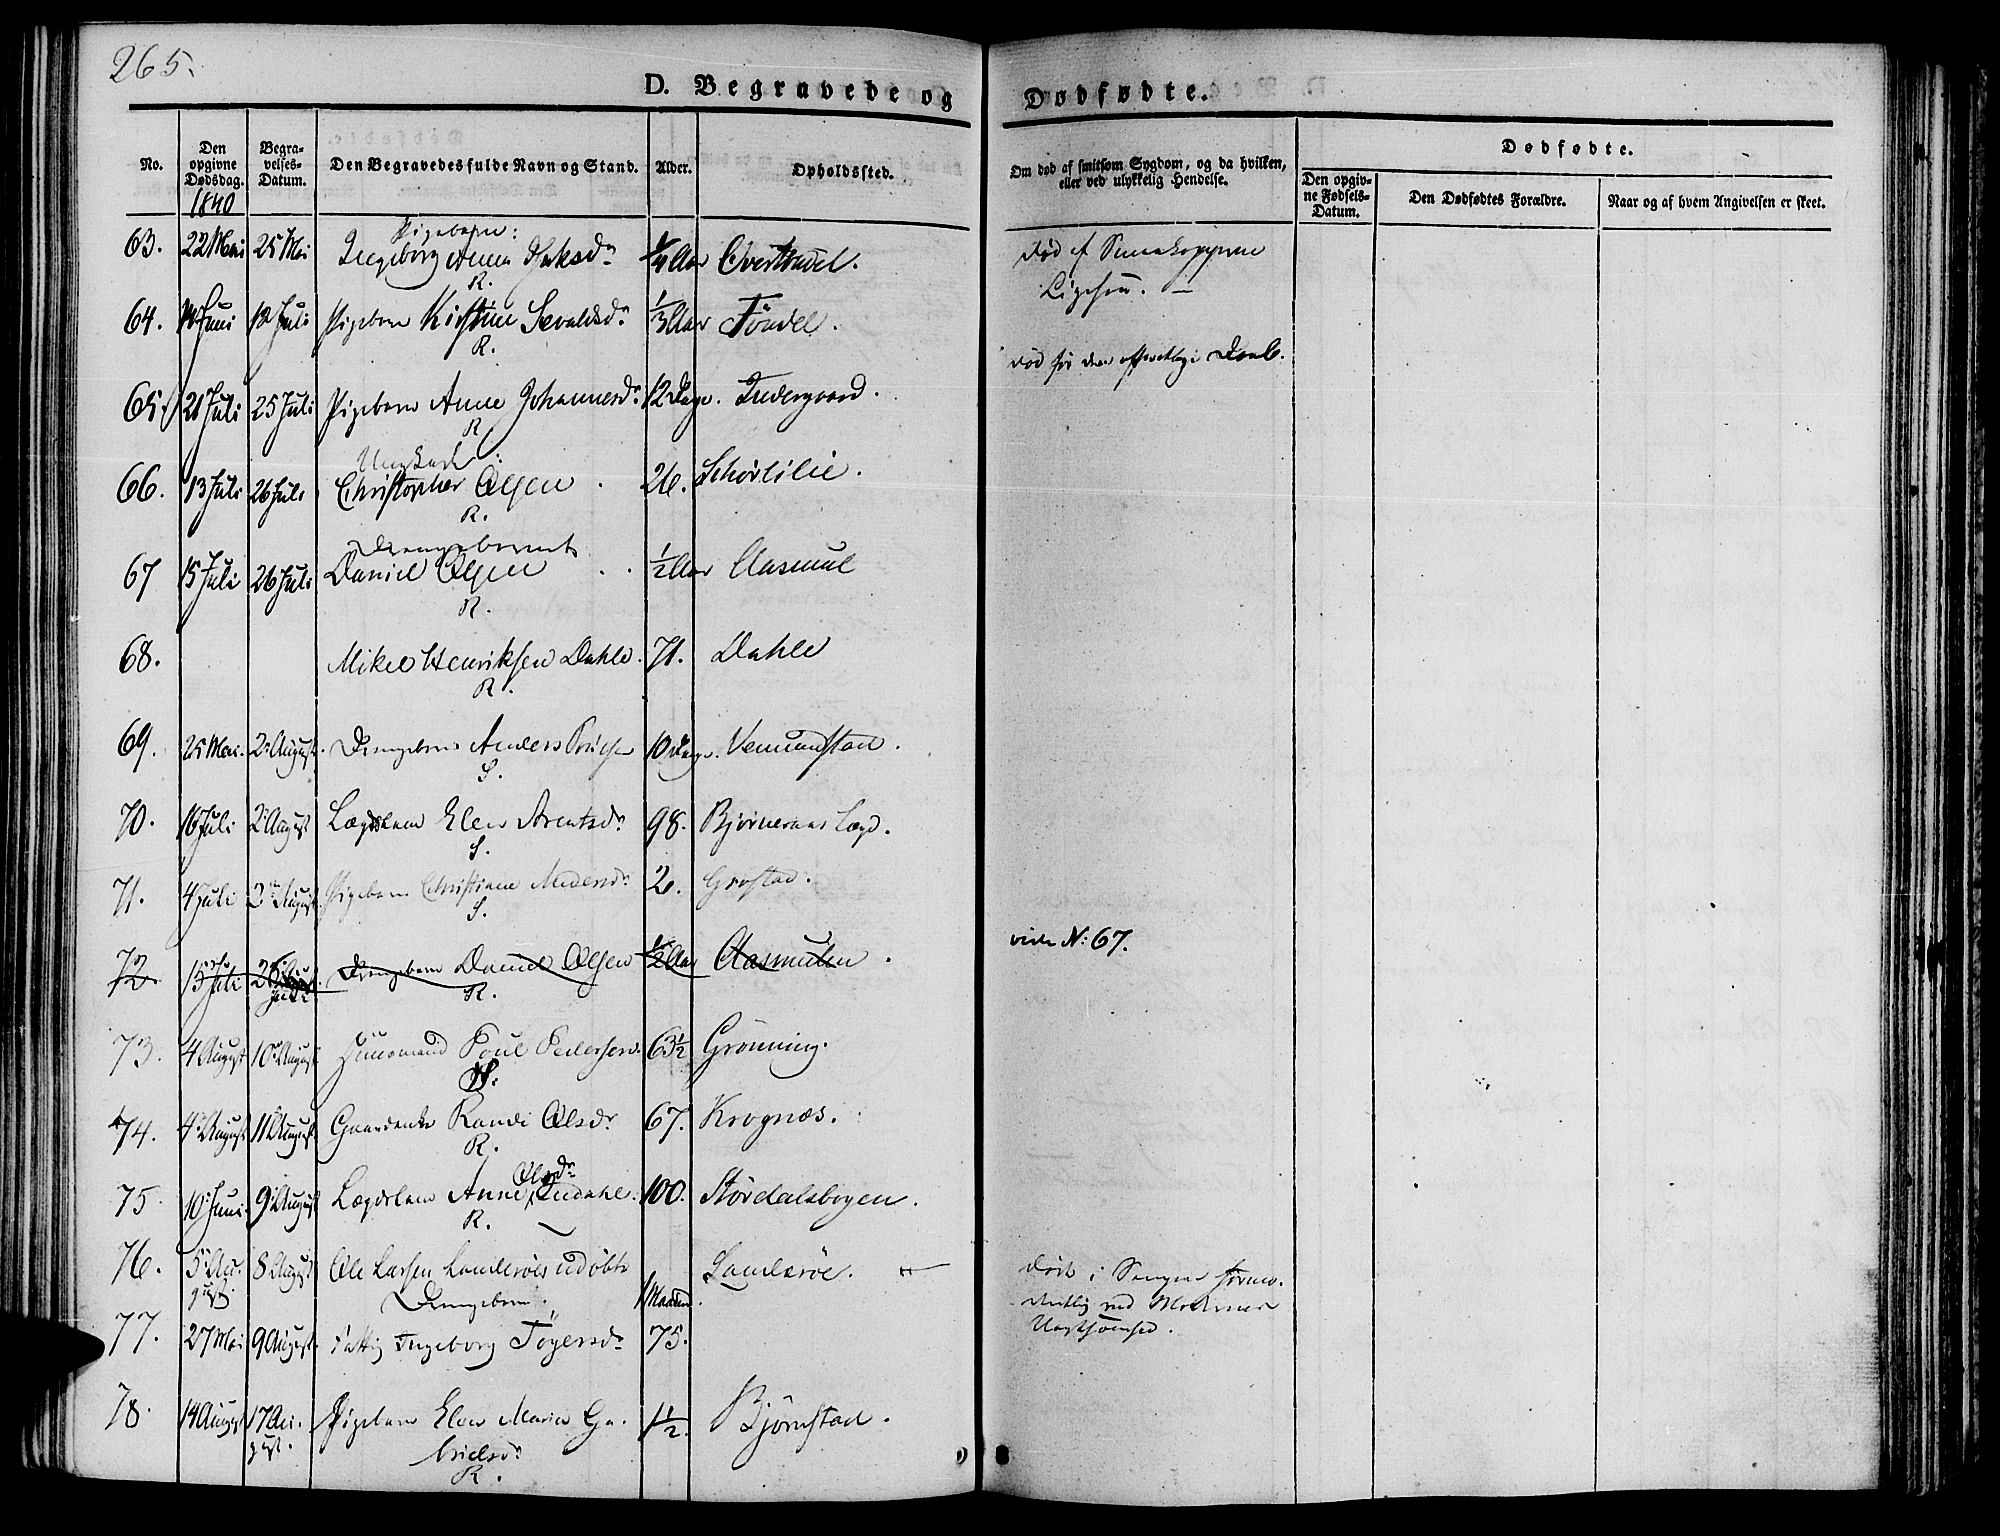 265.
D. Begravede og Dødfødte.
No.
Den opgivne Dødsdag.
Begravelses-Datum.
Den Begravedes fulde Navn og Stand.
Alder.
Opholdssted.
Om død af smitsom Sygdom, og da hvilken, eller ved ulykkelig Hendelse.
Dødfødte.
Den opgivne Fødsels-Datum.
Den Dødfødtes Forældre.
Naar og af hvem Angivelsen er skeet.
1840
Pigebarn:
63. 22 Mai 25 Mai Ingeborg Anna 1/4 Aar
R.
64. Juni 12 Juli Pigebarn Kirstine Sevaldsdr 1/3 Aar Töndel.
R.
65. 21 Juli 25 Juli Pigebarn Anne Johannesdr 12 Dage. Indergaard.
R
Ungkarl:
66. 13 Juli 26 Juli Christopher Olsen 26.
R.
Drengebarnet
67 15 Juli 26 Juli Daniel Olsen 1/2 Aar Aasmul
R.
68. Mikel Henriksen Dahle. 71. Dahle
R.
69. 25 Mai. 2 August. Drengebarn Anders 10 Dage. Vemunstad.
S.
70. 16 Juli 2 August Lægdslem Elen Arentsdr 98. Bjørneraas Lægd.
S.
71. 4 Juli 2 August Pigebarn Christiane 2. Grøstad.
S.
72 15 Juli 26 Juli Drengebarn Daniel Olsen 1/2 Aar Aasmulen. vide N: 67.
R.
73. 4 August 10 August Huusmand Poul Pedersen. 63 1/2 Grönning.
74. 4 August 11 August Gaardenke Randi Olsdr 67. Krognæs.
R.
Olsdr
75. 10 Juni. 9 August Lægdslem Anne 100. Stördalsbogen.
R.
76. 5 August. 8 August Ole Larsen Landeröes udöbte Landeröe.
Drengebarn. 1 Maaned.
77. 27 Mai 9 August. Fattig Ingeborg TöGersdr 75.
78. 14 August 17 August. Pigebarn Elen Maria Gabrielsdr 1 1/2. Björnstad.
R.
Død af
Ligesaa. —
Død før den Daab.
Død i Sengen formodentlig ved Moderens